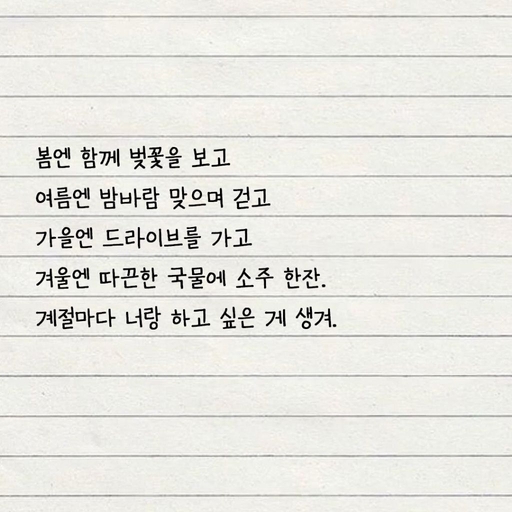 봄엔 함께 벚꽃을 보고
여름엔 밤바람 맞으며 걷고
가을엔 드라이브를 가고
겨울엔 따끈한 국물에 소주 한잔.
계절마다 너랑 하고 싶은 게 생겨.